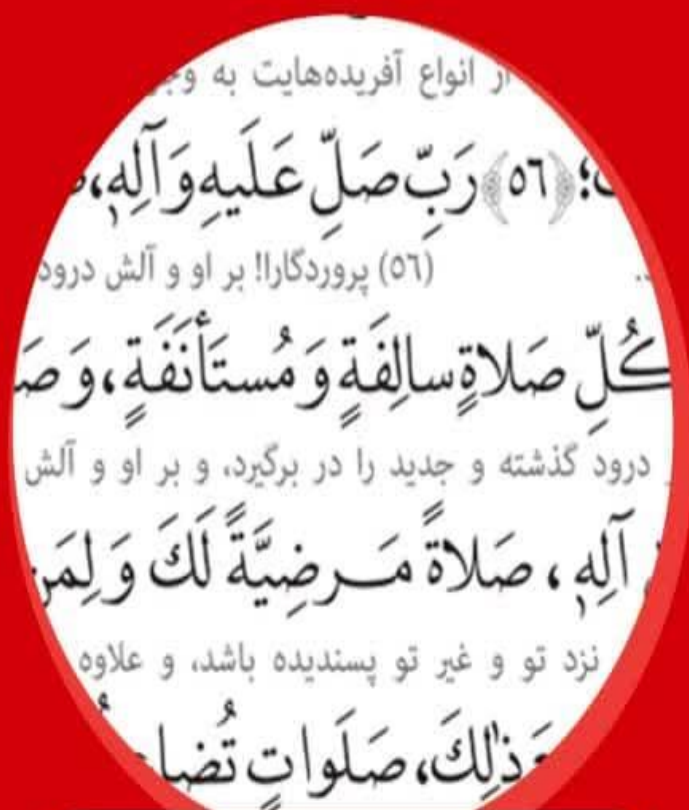 از انواع آفریده‌هایت به
﴿٥٦﴾ رَبِّ صَلِّ عَلَيهِ وَ آلِهِ،
(٥٦) پروردگارا! بر او و آلش درود
كُلِّ صَلاةٍ سالِفَةٍ وَ مُستَأنَفَةٍ، وَ
درود گذشته و جدید را در برگیرد، و بر او و آلش
آلِهِ، صَلاةً مَـرضِيَّةً لَكَ وَ لِمَن
نزد تو و غیر تو پسندیده باشد، و علاوه
ذٰلِكَ، صَلَواتٍ